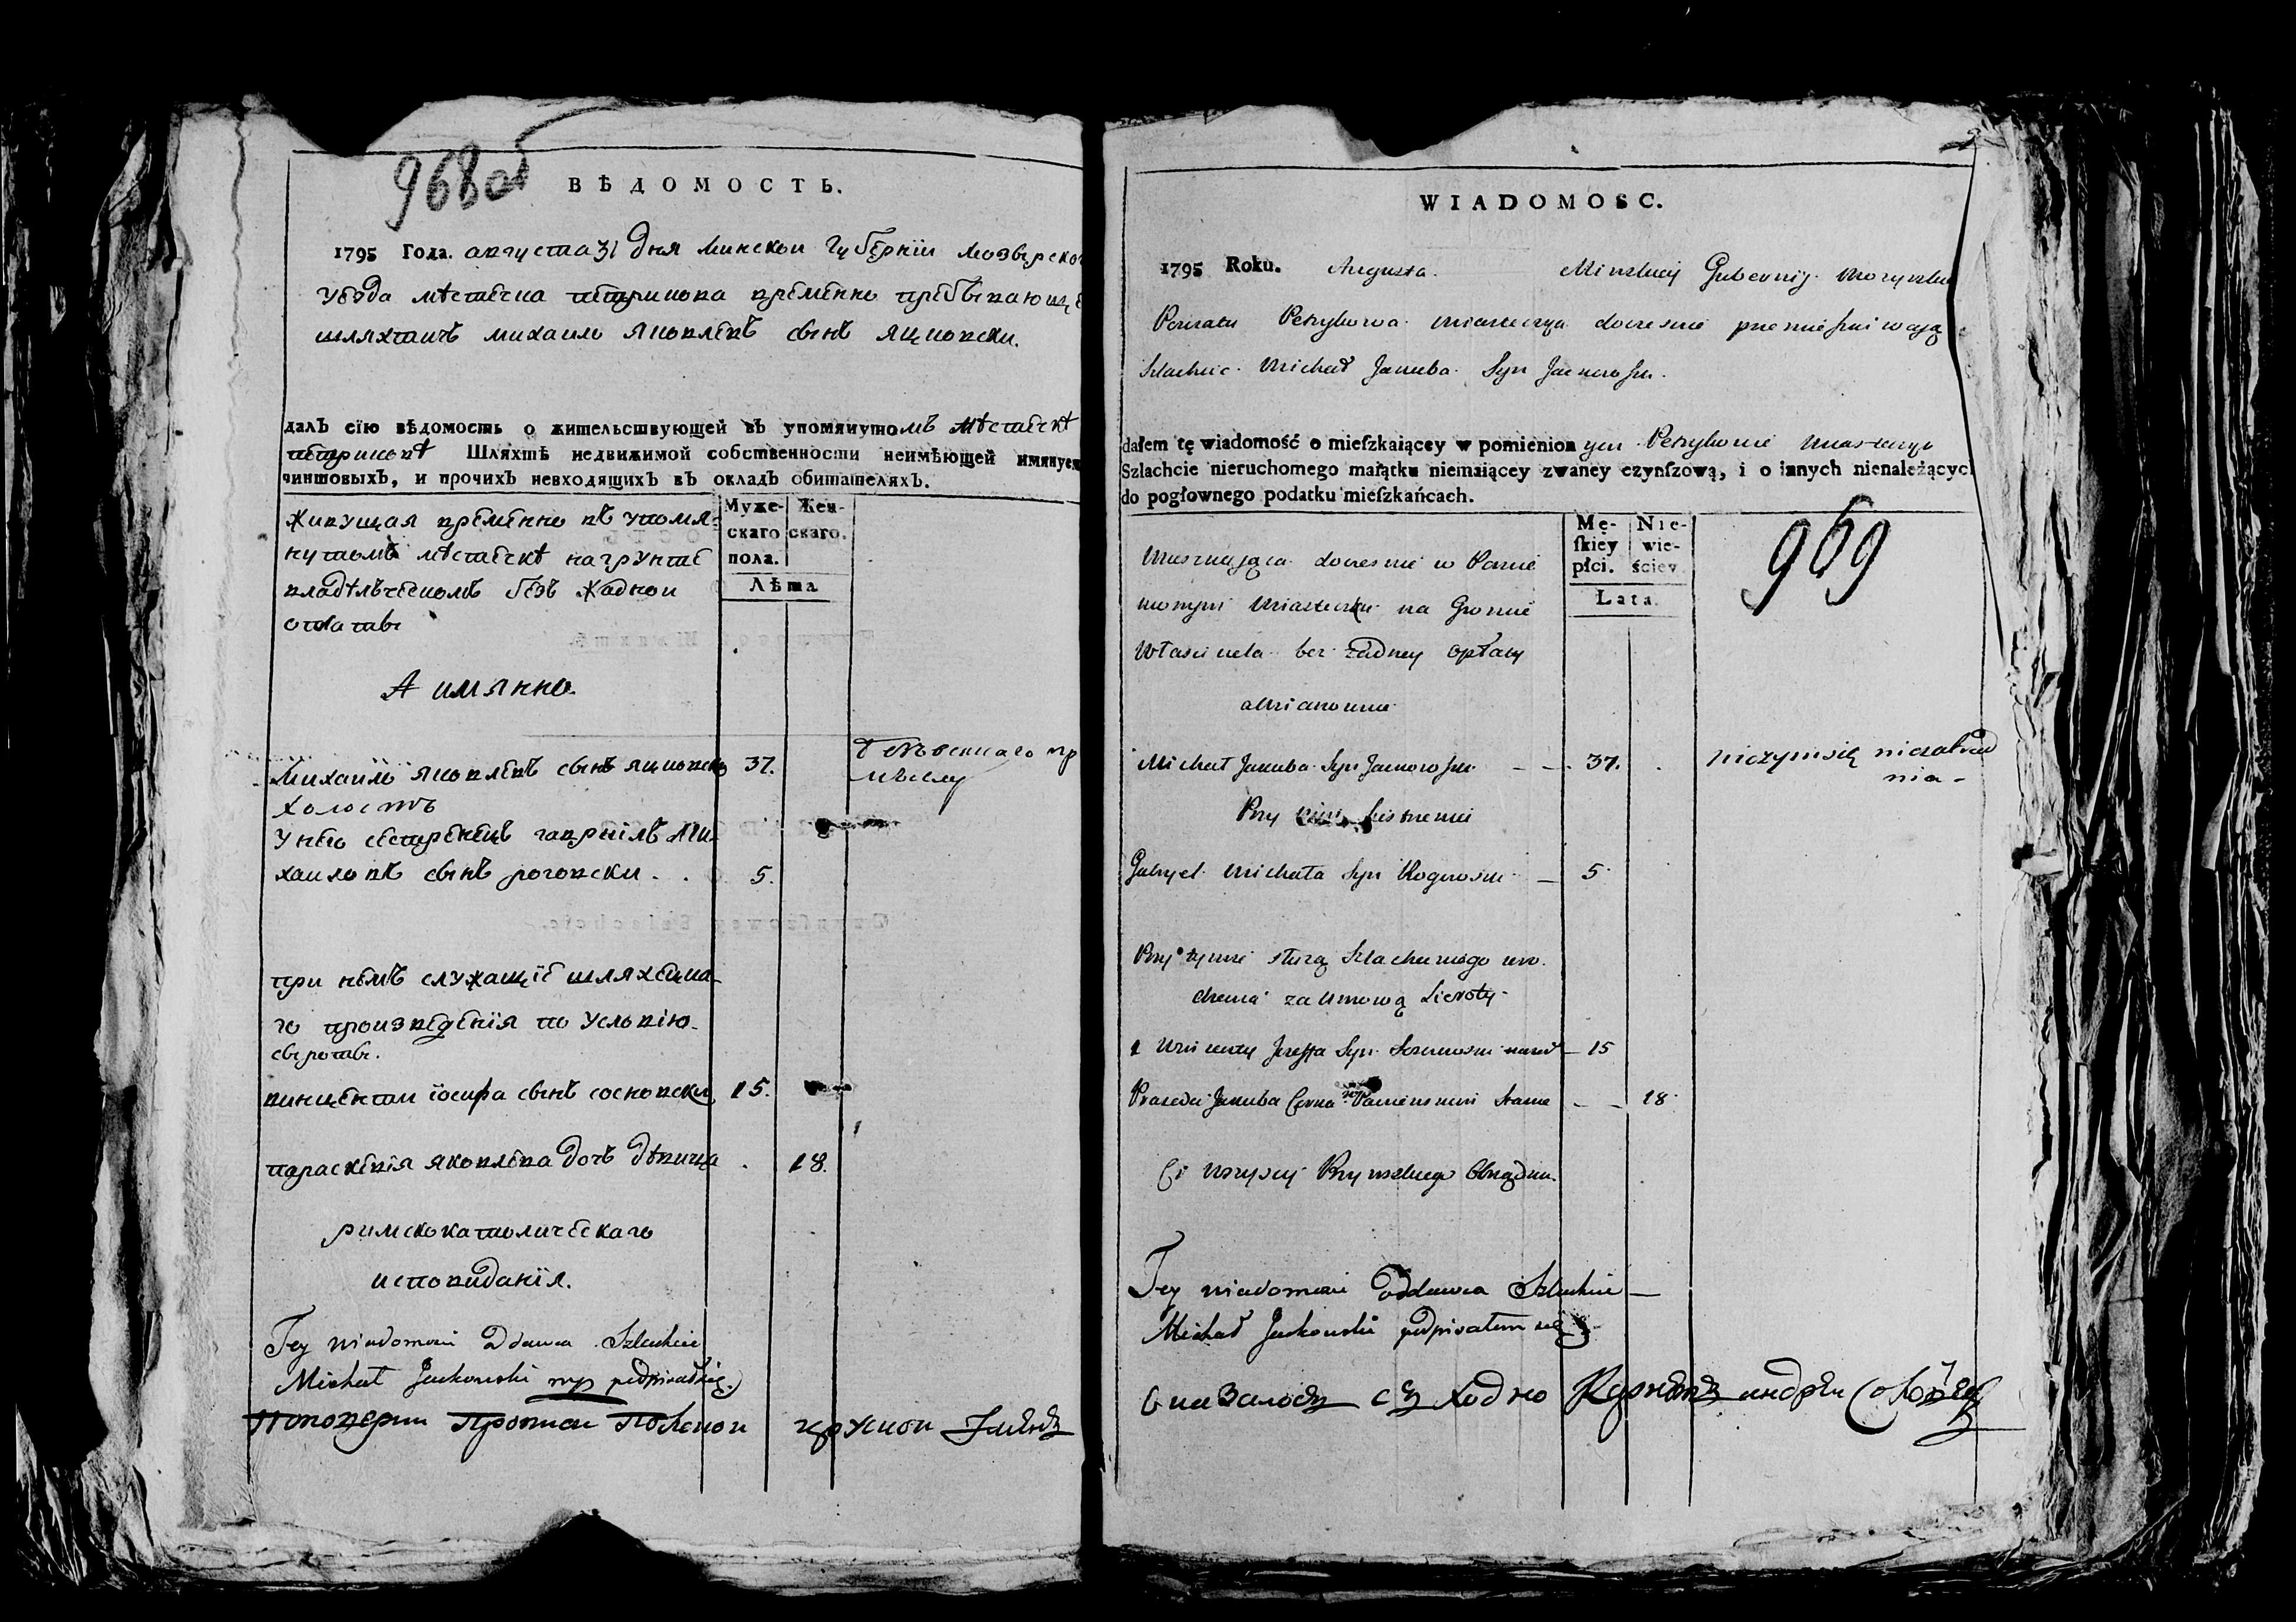 968об
ВѢДОМОСТЬ.
1795 Года. августа 31 дня минской губернїи мозырско
уезда мѣстечка петрикова временно пребывающе
шляхтичъ михаило яковлевъ сынъ яцковски.
далъ сїю вѣдомость о жительствующей въ упомянутомъ мѣстечкѣ
петриковѣ Шляхтѣ недвижимой собственности неимѣющей имянуем
чиншовыхъ, и прочихъ невходящихъ въ окладъ обитателяхъ.
Муже- Жен-
скаго скаго.
пола.
Лѣта
живущая временно въ упомя-
нутомъ мѣстечкѣ на грунте
владѣльческомъ безъ жадной
оплаты
А имянно.
Михайло яковлевъ сынъ яцковски 37.
холостъ
у него сестренецъ гаврїилъ ми-
хаиловъ сынъ роговски. . 5.
при немъ служащїе шляхецка-
го произведенїя по условїю
сыроты.
винцентий їосифа сынъ сосновски 15.
параскевїя яковлева дочь дѣвица . 18.
римскокатолическаго
исповиданїя.
Tey wiadomosci Oddawca Szlachcic
Michał Jackowski mp podpisał się.
WIADOMOSC.
1795 Roku. Augusta. Minskiey Gubernij. Mozyrskie
Powiatu Petrykowa Miasteczka doczesnie przemieszkiwaią
Szlachcic. Michał Jakuba Syn Jackowski.
dałem tę wiadomość o mieſzkaiącey w pomienionym Petrykowie Miasteczku
Szlachcie nieruchomego maiątku niemaiącey zwaney czynſzową, i o innych nienależącyc
do pogłownego podatku mieſzkańcach.
Mę- Nie-
ſkiey wie-
płci. ściey
Lata.
969
Mieszkająca doczesnie w Pomie
nionym Miasteczku na Groncie
Własciciela bez żadney opłaty
a Mianowicie
Michał Jakuba Syn Jackowski — 37. niczym się niezatrud
nia -
Przy nim siestrzeniec
Gabryel Michała Syn Rogowski — 5
Przy tymże służą Szlachetnego uro
dzenia za Umową Sieroty
Wincenty Jozeffa Syn Sosnowski — 15
Praxeda Jakuba Corka Panienskim Stanie — 18
Ci wszyscy Rzymskiego Obrządku.
Tey wiadomosci Oddawca Szlachcic —
Michał Jackowski podpisałem się